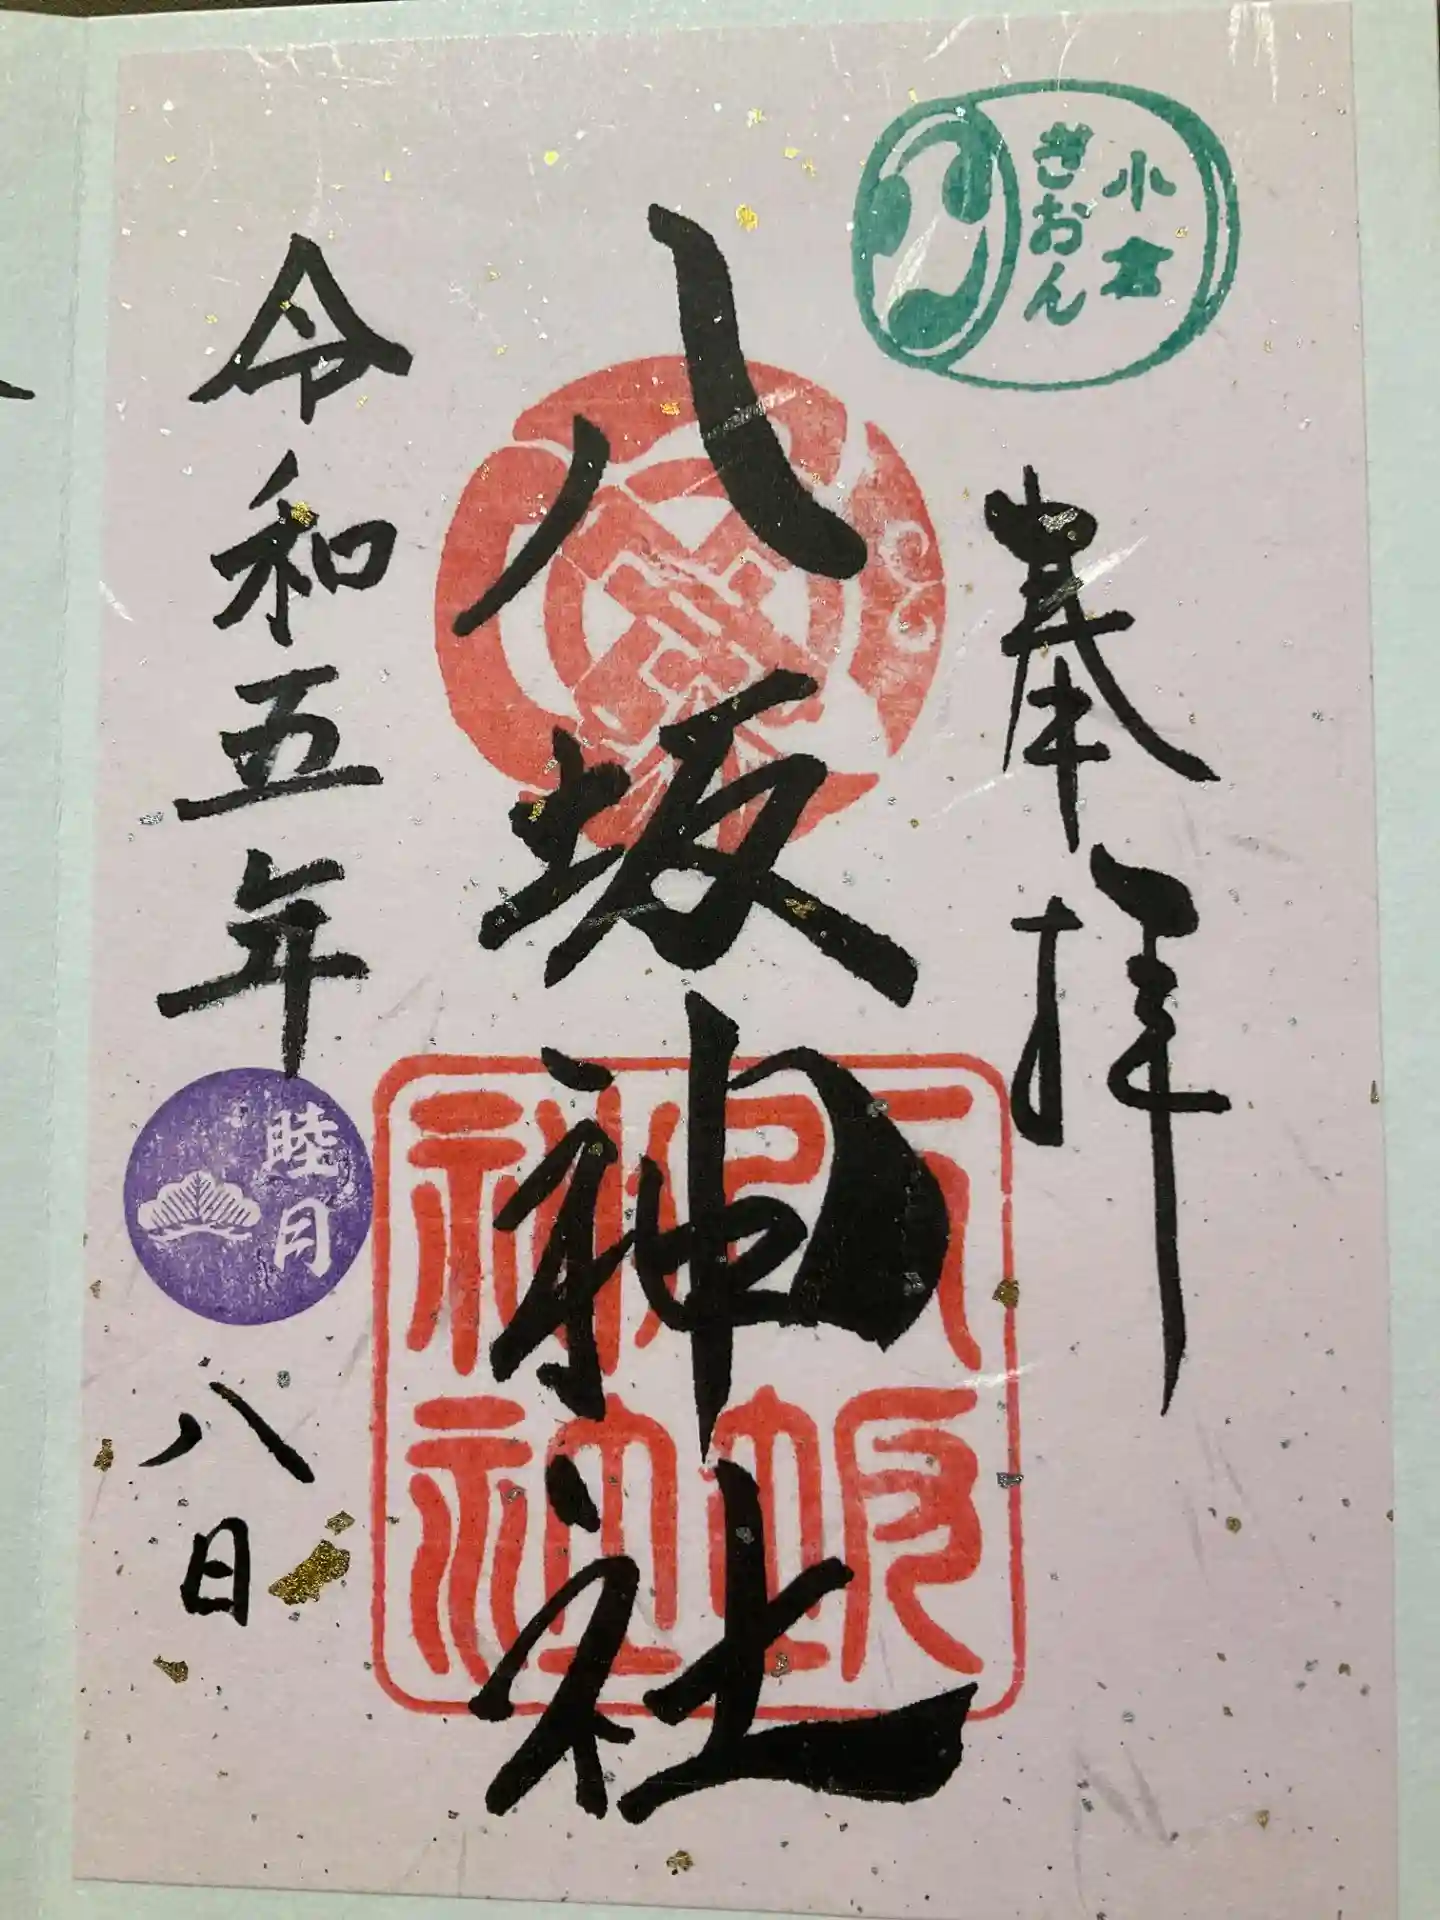 小倉
ぎおん
奉拝
八坂神社
八坂神社
令和五年
睦月
八日